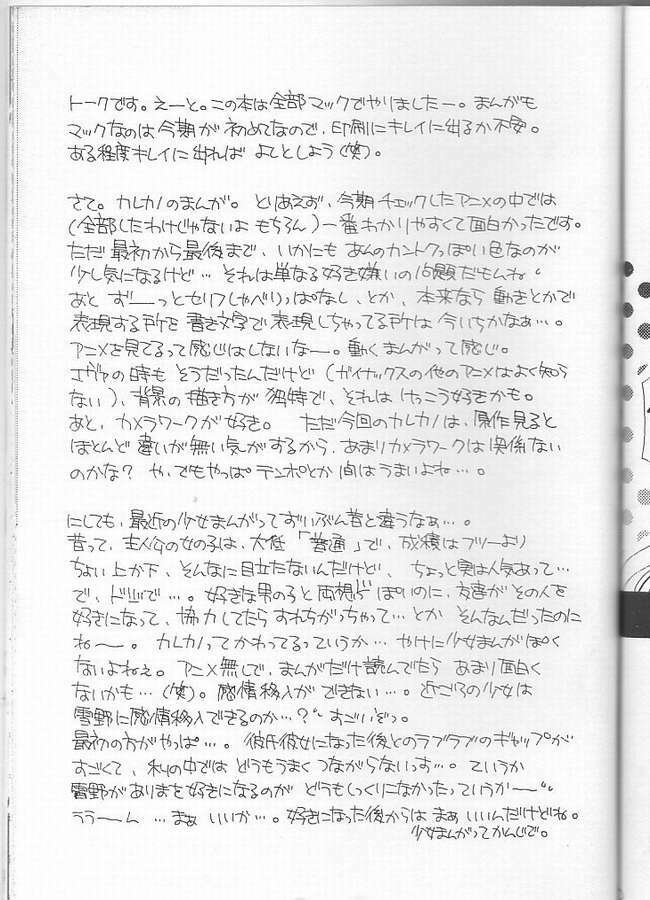 トークです。えーと。この本は全部マックでやりましたー。まんがも
マックなのは今期が初めてなので、印刷にキレイに出るか不安。
ある程度キレイに出れば よしとしよう(笑)。
さて。カレカノのまんが。とりあえず、今期チェックしたアニメの中では
(全部したわけじゃないよ もちろん)一番わかりやすくて面白かったです。
ただ最初から最後まで、いかにも あんのカントクっぽい色なのが
少し気になるけど… それは単なる好き嫌いの問題だもんね。
あと ずーーっとセリフしゃべりっぱなし、とか、本来なら動きとかで
表現する所を書き文字で表現しちゃってる所は今いちかなぁ…。
アニメを見てるって感じはしないなー。動くまんがって感じ。
エヴァの時も そうだったんだけど(ガイナックスの他のアニメはよく知ら
ない)、背景の描き方が 独特で、それは けっこう好きかも。
あと、カメラワークが好き。 ただ今回のカレカノは、原作見ると
ほとんど違いが無い気がするから、あまりカメラワークは関係ない
のかな? や、でもやっぱテンポとか間はうまいよね…。
にしても、最近の少女まんがってずいぶん昔と違うなぁ…。
昔って、主人公の女の子は、大低「普通」で、成積はフツーより
ちょい上か下、そんなに目立たないんだけど、ちょっと実は人気あって…
で、ドジで…。好きな男の子と両想いっぽいのに、友達がその人を
好きになって、協力してたら すれちがっちゃって…とか そんなんだったのに
ねー。カレカノってかわってるっていうか… やけに少女まんがぽく
ないよねぇ。アニメ無しで、まんがだけ読んでたら あまり面白く
ないかも…(笑)。感情移入が できない…。近ごろの少女は
雪野に感情移入できるのか…?すごいぞっ。
最初の方がやっぱ…。彼氏彼女になった後とのラブラブのギャップが
すごくて、私の中では どうもうまく つながらないっす…。ていうか
雪野がありまを好きになるのが どうもしっくりこなかったっていうかー
ううーん …まぁ いいか…。好きになった後からは まぁ いいんだけどね。
少女まんがってかんじで。